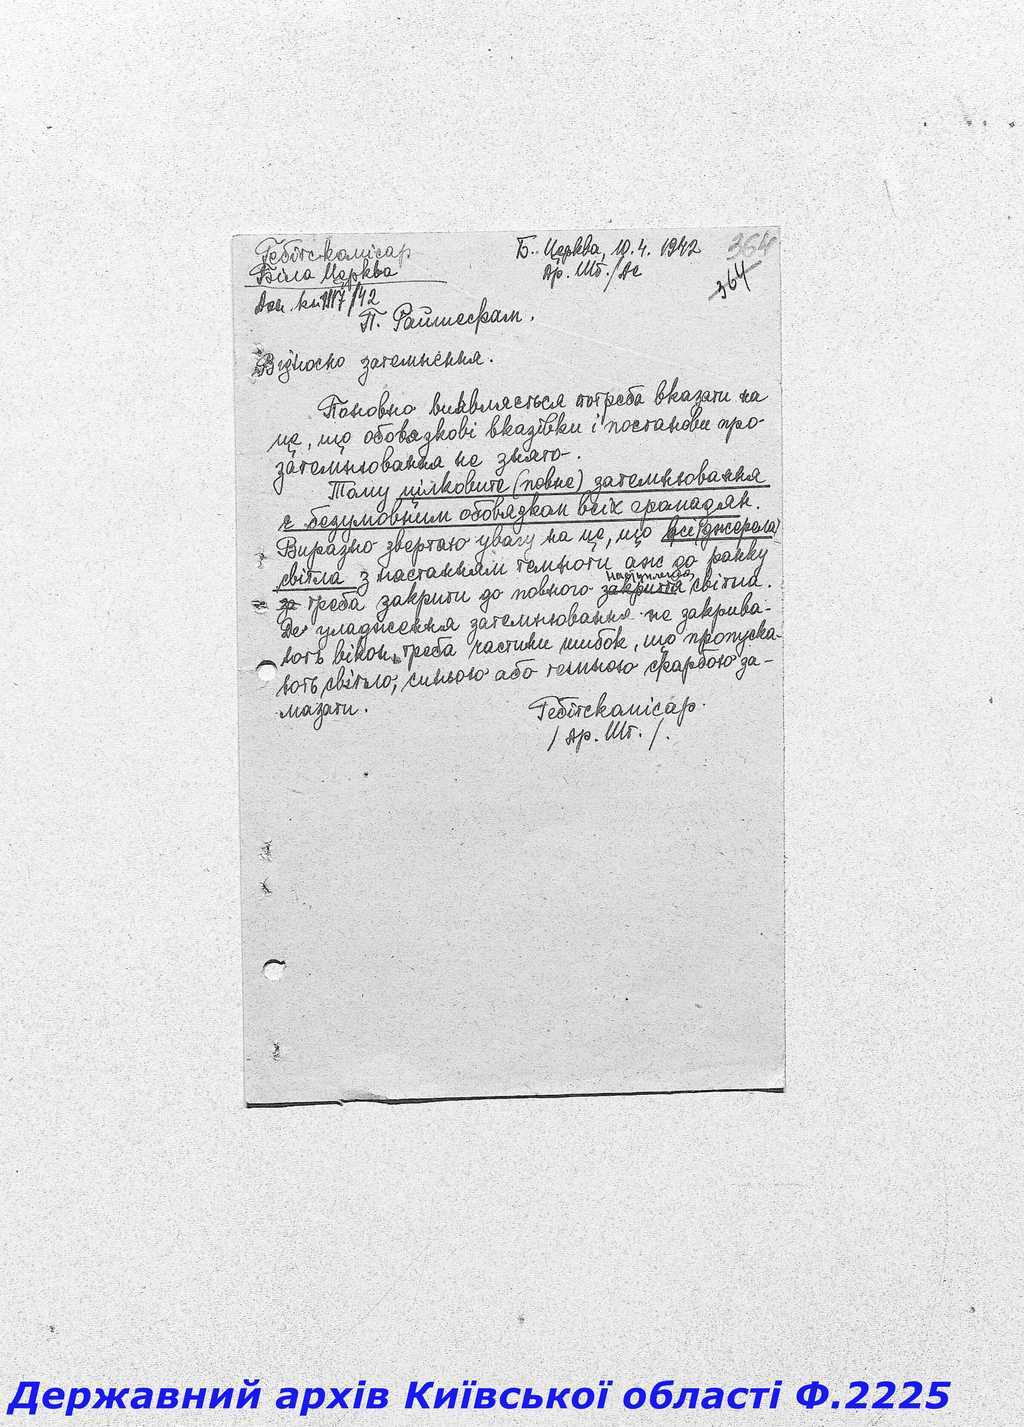 Гебітскомісар
Б. Церква, 10.4.1942
364
Біла Церква
Др. Шт./Ае
364
/42
П. Раймсефам.
Відносно затемнення.
Поновно виявляється потреба вказати на
це, що обов'язкові вказівки і постанови про
затемнювання не знято.
Тому цілковите (повне) затемнювання
є безумовним обов'язком всіх громадян.
Виразно звертаю увагу на це, що всі джерела
світла з настанням темноти аж до ранку
треба закрити до повного закриття світла.
Де уладження затемнювання не закрива-
ють вікон, треба частини шибок, що пропуска-
ють світло, синьою або темною фарбою за-
мазати.
Гебітскомісар.
/Др. Шт./.
Державний архів Київської області Ф.2225